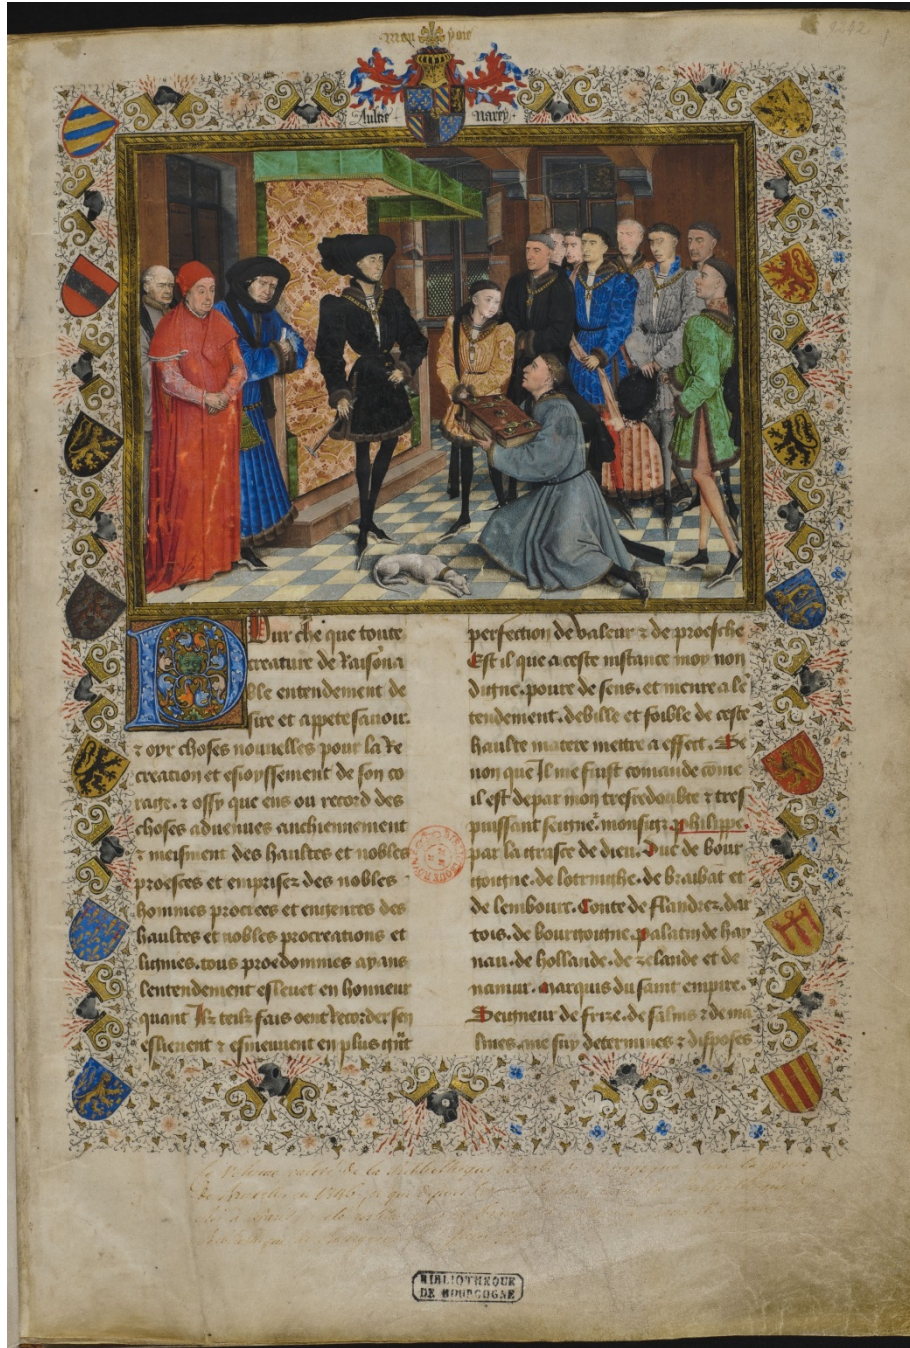 Mon Yoie
2242
Aultre Narey
Pour che que toute
creature de Raisona
ble entendement de
sire et appete savoir.
⁊ oyr choses nouvelles pour la Re
creation et esioyssement de son co
rage. ⁊ ossy que ens ou record des
choses advenues anchiennement
⁊ meisment des haultes et nobles
proesces et emprises des nobles
hommes procrees et engenres des
haultes et nobles procreations et
lignies. tous proedommes ayans
lentendement eslevet en honneur
quant Ilz telz fais oent Recorder sen
eslievent ⁊ esmeuvent en plus grāt
perfection de valeur ⁊ de proesche
Est il que a ceste instance moy non
digne. povre de sens. et menre a lē
tendement. debille et foible de ceste
haulte matere mettre a effect. Se
non que Il me fuist comande cōme
il est de par mon tresredoubte ⁊ tres
puissant seigne᷑. monsigr̄ phelippe.
par la grasce de dieu. Duc de bour
goigne. de lotringhe. de braibāt et
de lembourc. Conte de flandrez. dar
tois. de bourgoigne. palatin de hay
nau. de hollande. de zelande et de
namur. Marquis du saint empire.
Seigneur de frize. de salins ⁊ de ma
lines. me suy determines ⁊ disposes
de la Bibliothèque
de Bruxelles en 1746
BIBLIOTHEQUE
DE BOURGOGNE